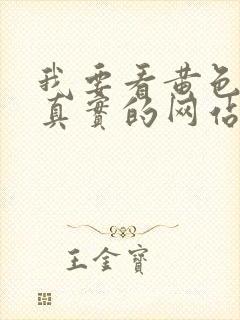 我要看黄色
真實的网站
王金寶